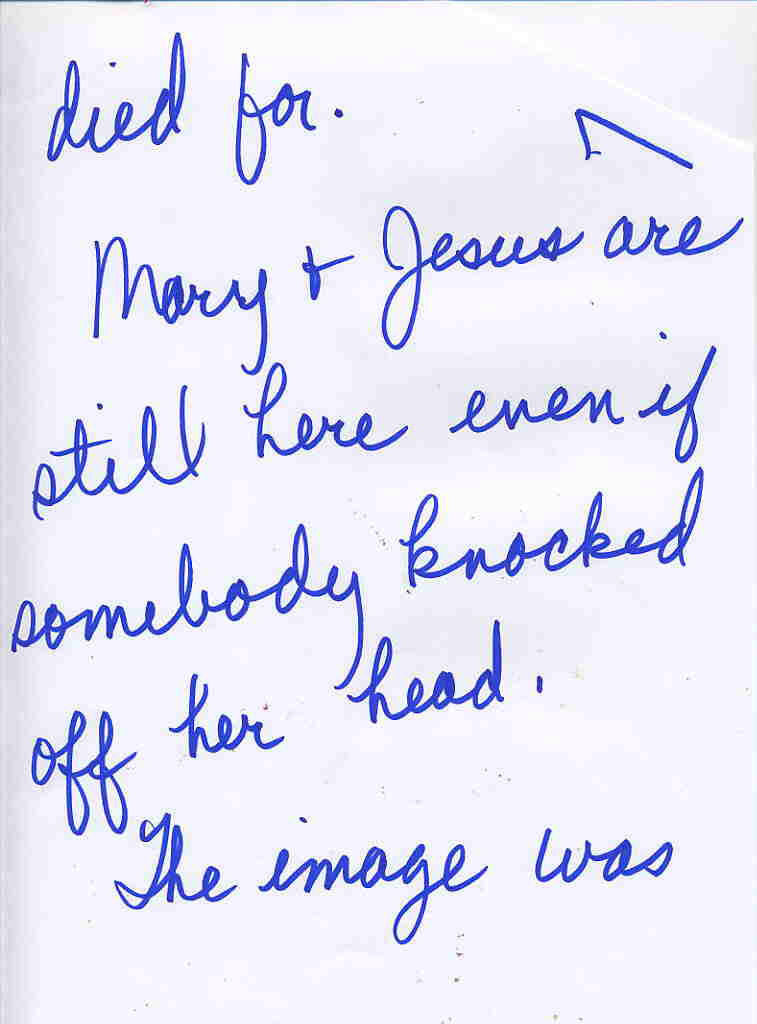 died for.
Mary + Jesus are
still here even if
somebody knocked
off her head.
The image was